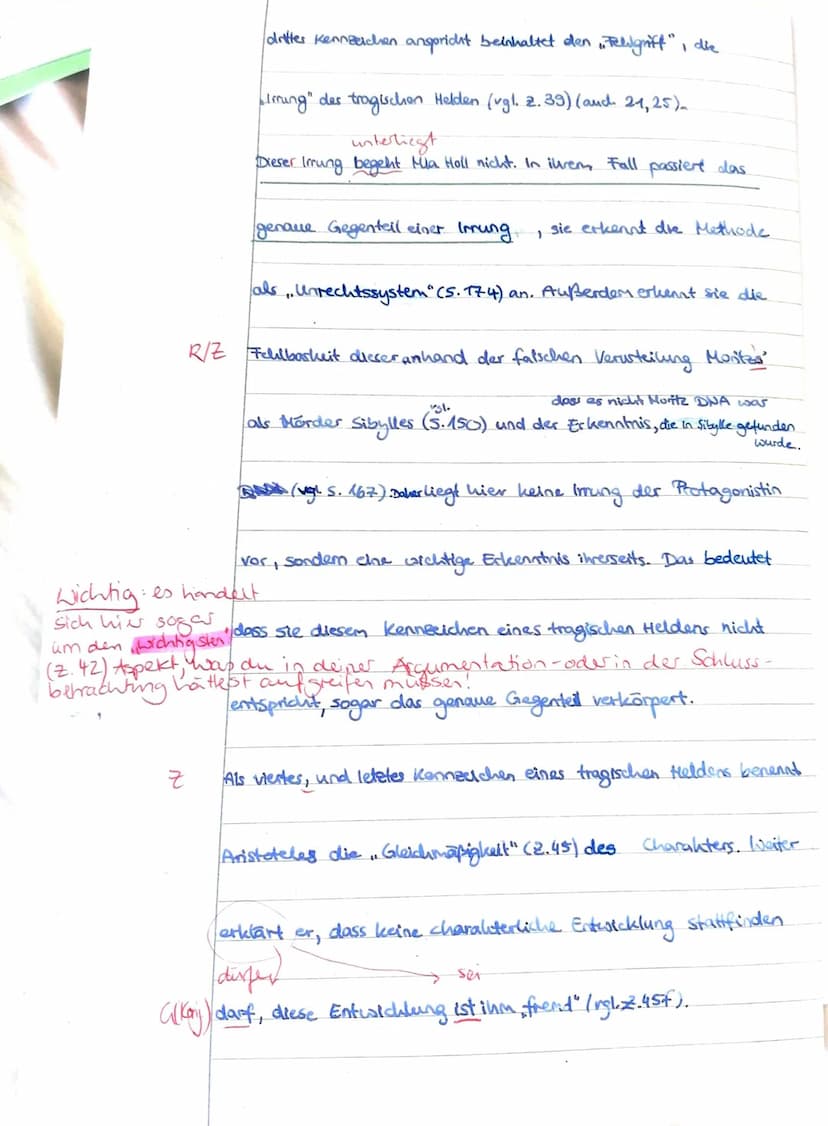 drittes Kennzeichen anspricht beinhaltet den „Fehlgriff", die
„Irrung" des tragischen Helden (vgl. Z. 39) (auch 21, 25).
unterliegt
Dieser Irrung begeht Mia Holl nicht. In ihrem Fall passiert das
genaue Gegenteil einer Irrung, sie erkennt die Methode
als „Unrechtssystem" (S. 174) an. Außerdem erkennt sie die
R/Z Fehlbarkeit dieser anhand der falschen Verurteilung Moritz'
dass es nicht Moritz DNA war
als Mörder Sibylles (vgl. S. 150) und der Erkenntnis, die in Sibylle gefunden
wurde.
(vgl. S. 167). Daher liegt hier keine Irrung der Protagonistin
vor, sondern eine wichtige Erkenntnis ihrerseits. Das bedeutet
Wichtig: es handelt
sich hier sogar
um den „wichtigsten"
(Z. 42) Aspekt, was du in deiner Argumentation - oder in der Schluss-
betrachtung hättest aufgreifen müssen!
dass sie diesem Kennzeichen eines tragischen Heldens nicht
entspricht, sogar das genaue Gegenteil verkörpert.
Z Als viertes, und letztes Kennzeichen eines tragischen Heldens benennt
Aristoteles die „Gleichmäßigkeit" (Z. 45) des Charakters. Weiter
erklärt er, dass keine charakterliche Entwicklung stattfinden
dürfe sei
G(Konj) darf, diese Entwicklung ist ihm „fremd" (vgl. Z. 45f).